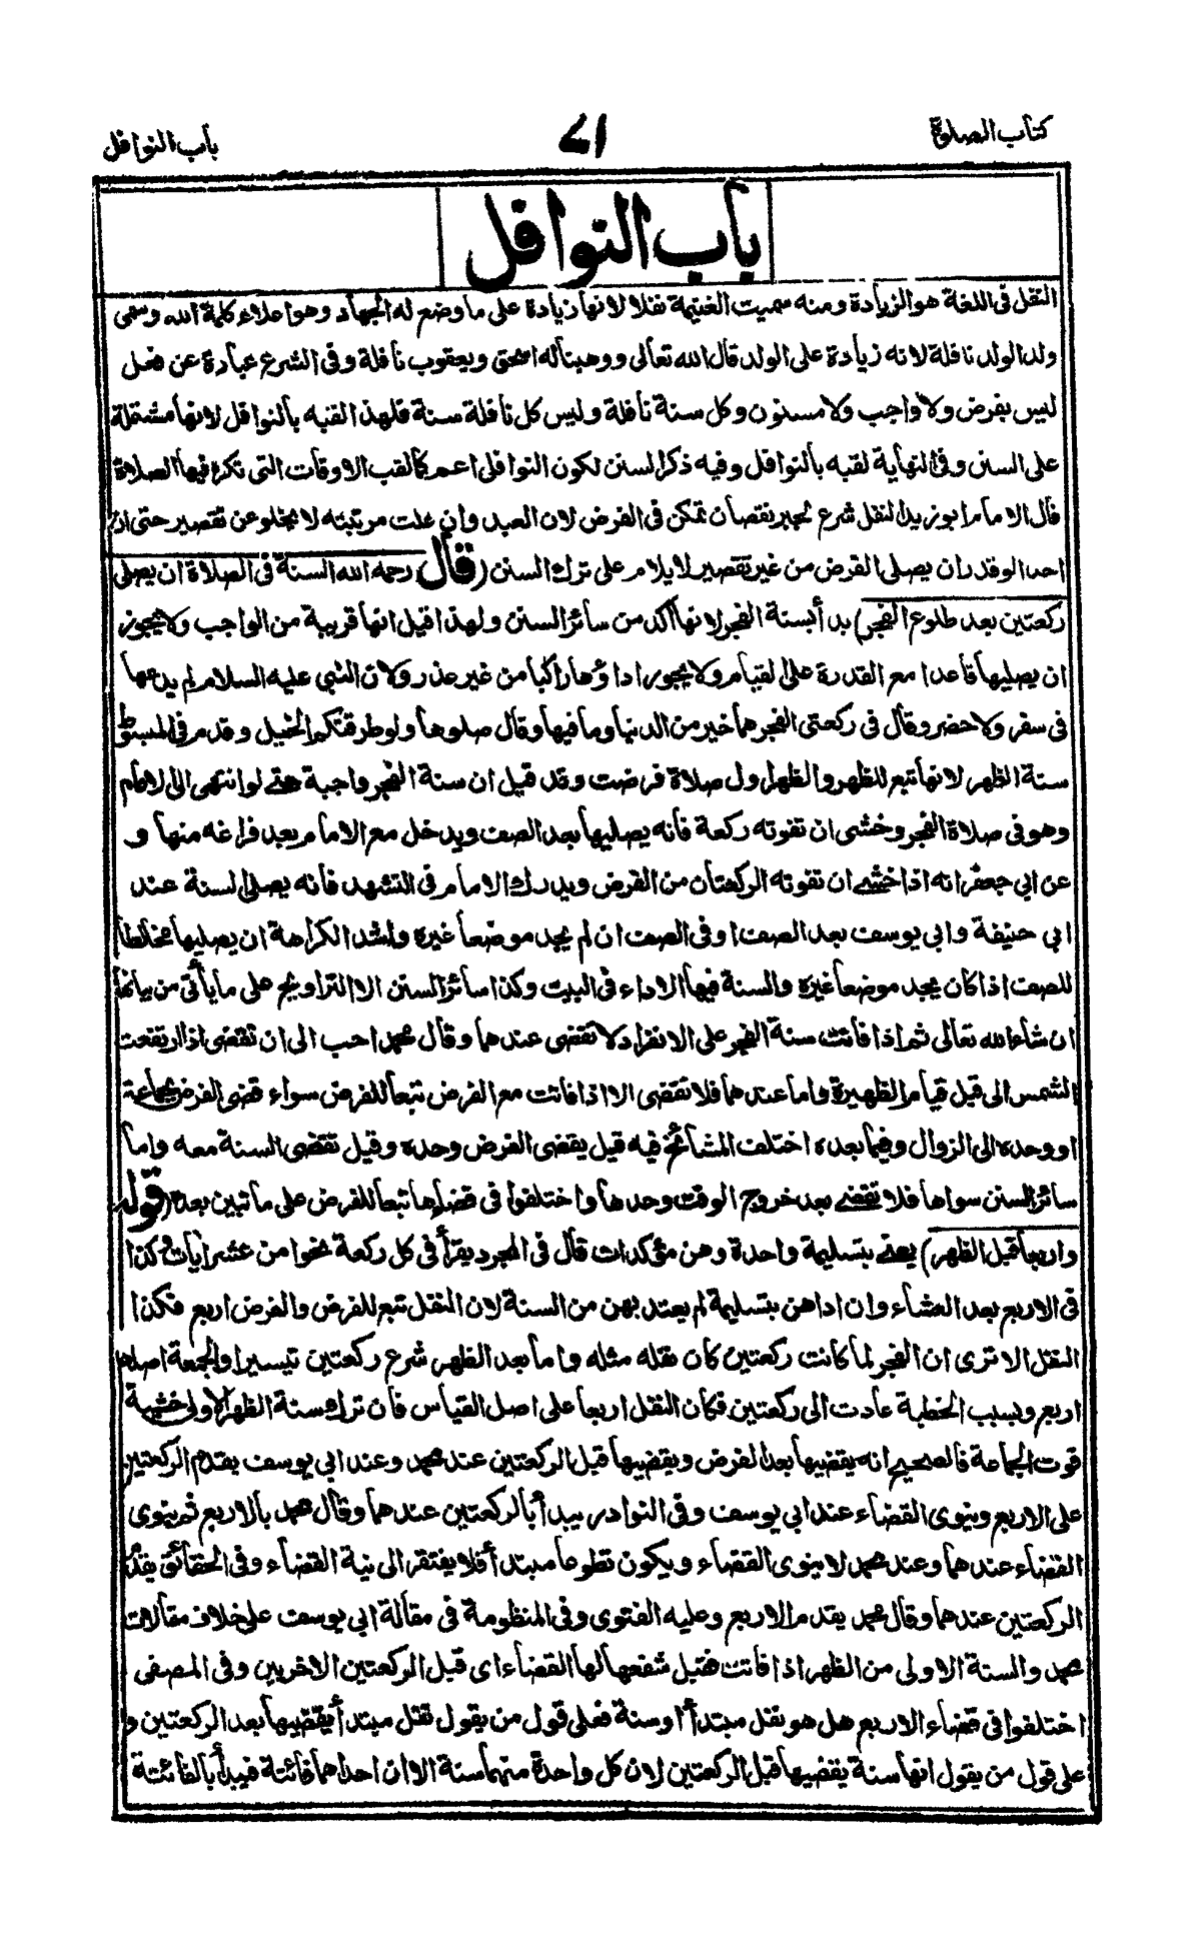 كتاب الصلوة
٧١
باب النوافل
باب النوافل
النفل فى اللغة هو الزيادة ومنه سميت الغنيمة نفلا لانها زيادة على ما وضع له الجهاد وهو اعلاء كلمة الله وسمى
ولد الولد نافلة لانه زيادة على الولد قال الله تعالى ووهبنا له اسحق ويعقوب نافلة وفى الشرع عبارة عن فعل
ليس بفرض ولا واجب ولا مسنون وكل سنة نافلة وليس كل نافلة سنة فلهذا لقبه بالنوافل لانها مشتملة
على السنن وفى النهاية لقبه بالنوافل وفيه ذكر السنن لكون النوافل اعم كما لقب الاوقات التى تكره فيها الصلاة
قال الامام ابو زيد النفل شرع لجبر نقصان تمكن فى الفرض لان العبد وان علت مرتبته لا يخلو عن تقصير حتى ان
احدا لو قدر ان يصلى الفرض من غير تقصير لا يلام على ترك السنن (قال رحمه الله السنة فى الصلاة ان يصلى
ركعتين بعد طلوع الفجر) بدأ بسنة الفجر لانها آكد من سائر السنن ولهذا قيل انها قريبة من الواجب ولا يجوز
ان يصليها قاعدا مع القدرة على القيام ولا يجوز اداؤها راكبا من غير عذر ولان النبي عليه السلام لم يدعها
فى سفر ولا حضر وقال فى ركعتى الفجر هما خير من الدنيا وما فيها وقال صلوها ولو طرقتكم الخيل وقدم فى المبسوط
سنة الظهر لانها تبع للظهر والظهر اول صلاة فرضت وقد قيل ان سنة الفجر واجبة حتى لو انتهى الى الامام
وهو فى صلاة الفجر وخشى ان تفوته ركعة فانه يصليها بعد الصف ويدخل مع الامام بعد فراغه منها و
عن ابي جعفر انه اذا خشى ان تفوته الركعتان من الفرض ويدرك الامام فى التشهد فانه يصلى السنة عند
ابي حنيفة وابي يوسف بعد الصف او فى الصف ان لم يجد موضعا غيره واشد الكراهة ان يصليها مخالطا
للصف اذا كان يجد موضعا غيره والسنة فيها الاداء فى البيت وكذا سائر السنن الا التراويح على ما يأتى من بيانها
ان شاء الله تعالى ثم اذا فاتت سنة الفجر على الانفراد لا تقضى عندهما وقال محمد احب الى ان تقضى اذا ارتفعت
الشمس الى قبل قيام الظهيرة واما عندهما فلا تقضى الا اذا فاتت مع الفرض تبعا للفرض سواء قضى الفرض بجماعة
او وحده الى الزوال وفيما بعده اختلف المشائخ فيه قيل يقضى الفرض وحده وقيل تقضى السنة معه واما
سائر السنن سواها فلا تقضى بعد خروج الوقت وحدها واختلفوا فى قضاءها تبعا للفرض على ما تبين بعد (قوله
واربعا قبل الظهر) يعنى بتسليمة واحدة وهن مؤكدات قال فى المجرد يقرأ فى كل ركعة نحوا من عشر آيات وكذا
فى الاربع بعد العشاء وان اداهن بتسليمة لم يعتد بهن من السنة لان النفل تبع للفرض والفرض اربع فكذا
النفل الا ترى ان الفجر لما كانت ركعتين كان نفله مثله واما بعد الظهر شرع ركعتين تيسيرا والجمعة اصلها
اربع وبسبب الخطبة عادت الى ركعتين فكان النفل اربعا على اصل القياس فان ترك سنة الظهر الاولى خشية
فوت الجماعة فالصحيح انه يقضيها بعد الفرض ويقضيها قبل الركعتين عند محمد وعند ابي يوسف يقدم الركعتين
على الاربع وينوى القضاء عند ابي يوسف وفى النوادر يبدأ بالركعتين عندهما وقال محمد بالاربع ثم ينوى
القضاء عندهما وعند محمد لا ينوى القضاء ويكون تطوعا مبتدأ فلا يفتقر الى نية القضاء وفى الحقائق يقدم
الركعتين عندهما وقال محمد يقدم الاربع وعليه الفتوى وفى المنظومة فى مقالة ابي يوسف على خلاف مقالات
محمد والسنة الاولى من الظهر اذا فاتت فقبل شفعها لها القضاء اى قبل الركعتين الاخريين وفى المصفى
اختلفوا فى قضاء الاربع هل هو نفل مبتدأ او سنة فعلى قول من يقول نفل مبتدأ يقضيها بعد الركعتين و
على قول من يقول انها سنة يقضيها قبل الركعتين لان كل واحدة منهما سنة الا ان احداهما فائتة فيبدأ بالفائتة